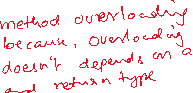 method overloading
because, overloading
doesn't depends on a
and return type